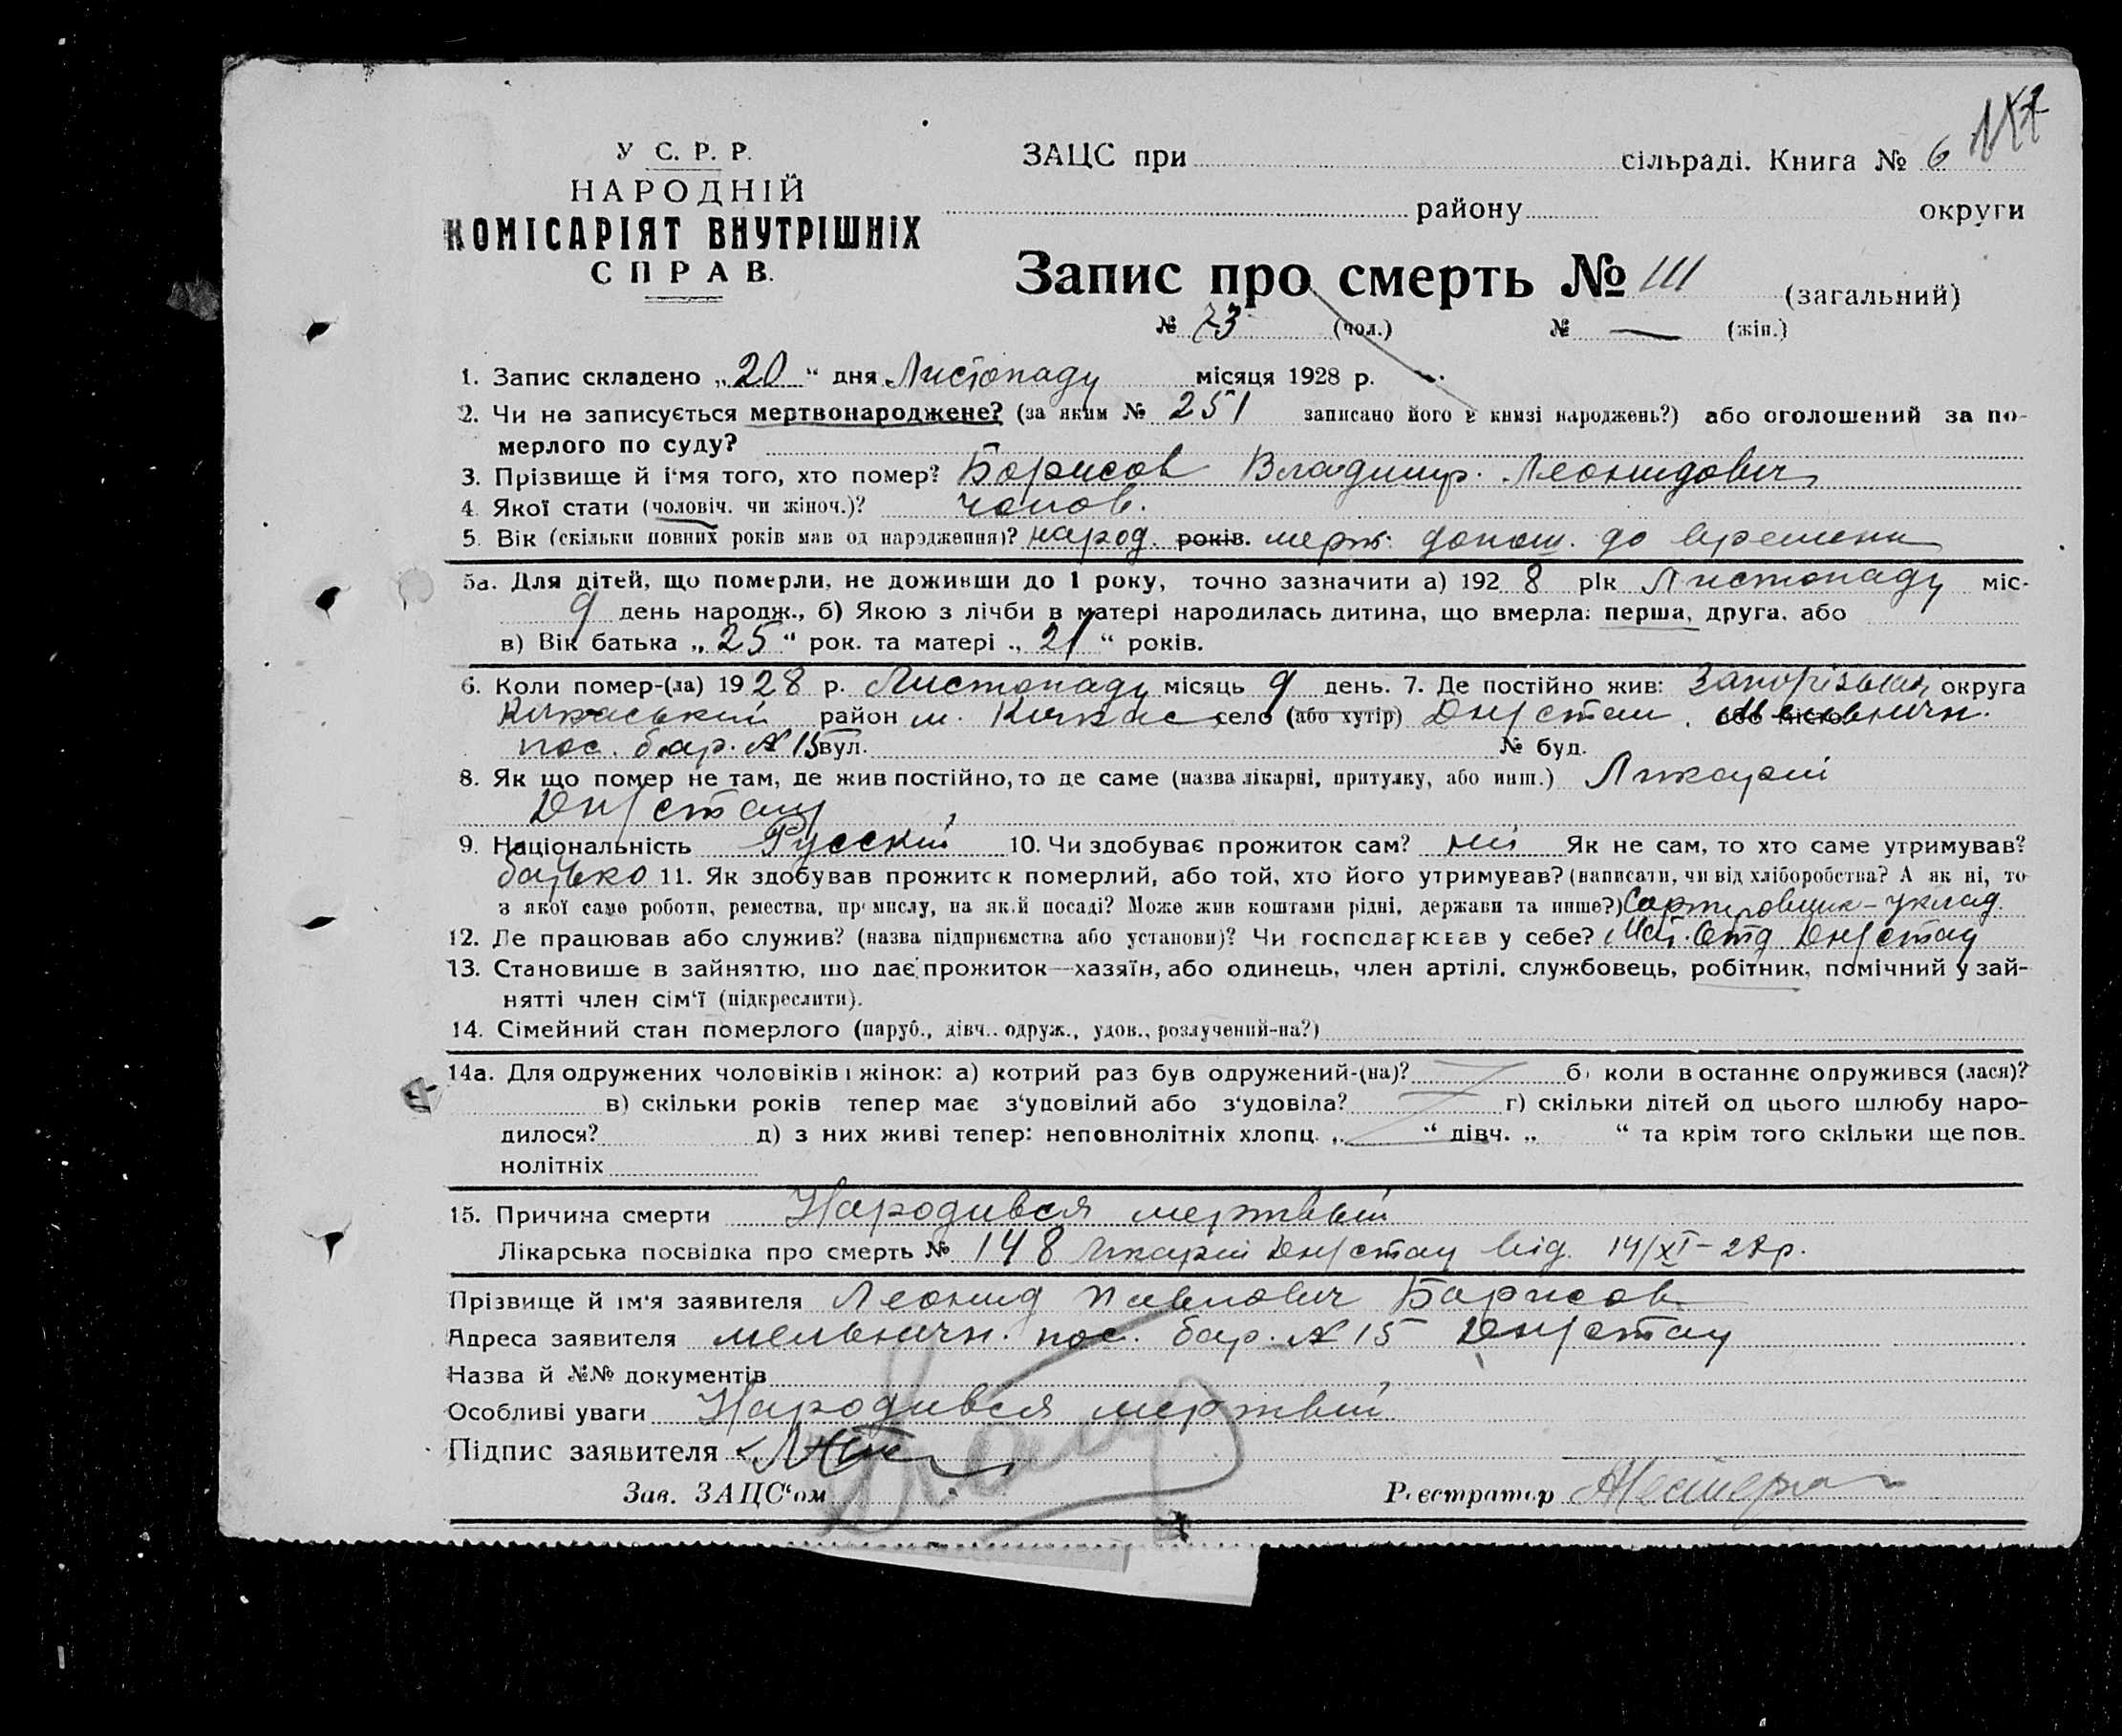 У С. Р. Р.
НАРОДНІЙ
КОМІСАРІЯТ ВНУТРІШНІХ
СПРАВ.
ЗАЦС при сільраді. Книга № 6
району округи
Запис про смерть № 111 (загальний)
№ 73 (чол.) № — (жін.)
1. Запис складено „20“ дня Листопаду місяця 1928 р.
2. Чи не записується мертвонароджене? (за яким № 251 записано його в книзі народжень?) або оголошений за по-
мерлого по суду?
3. Прізвище й і'мя того, хто помер? Борисов Владимир Леонидович
4. Якої стати (чоловіч. чи жіноч.)? чолов.
5. Вік (скільки повних років мав од народження)? народ. років. мерт. донош. до времени
5а. Для дітей, що померли, не доживши до 1 року, точно зазначити а) 1928 рік Листопаду міс-
9 день народж., б) Якою з лічби в матері народилась дитина, що вмерла: перша, друга, або
в) Вік батька „25“ рок. та матері „21“ років.
6. Коли помер-(ла) 1928 р. Листопаду місяць 9 день. 7. Де постійно жив: Запорізька округа
Кичкаський район м. Кичкас село (або хутір) Днепрстан. або місто Мельничн.
пос. бар. № 15 вул. № буд.
8. Як що помер не там, де жив постійно, то де саме (назва лікарні, притулку, або инш.) Ликарні
9. Національність Русский 10. Чи здобуває прожиток сам? ні Як не сам, то хто саме утримував?
батько 11. Як здобував прожиток померлий, або той, хто його утримував? (написати, чи від хліборобства? А як ні, то
з якої саме роботи, ремества, промислу, на якій посаді? Може жив коштами рідні, держави та инше?) Сортировщик-уклад.
12. Де працював або служив? (назва підприємства або установи)? Чи господарював у себе? Отд
13. Становище в зайняттю, що дає прожиток—хазяїн, або одинець, член артілі, службовець, робітник, помічний у зай-
нятті член сім'ї (підкреслити).
14. Сімейний стан померлого (паруб., дівч., одруж., удов., розлучений-на?)
14а. Для одружених чоловіків і жінок: а) котрий раз був одружений-(на)? б) коли востаннє одружився (лася)?
в) скільки років тепер має з'удовілий або з'удовіла? г) скільки дітей од цього шлюбу наро-
дилося? д) з них живі тепер: неповнолітніх хлопц. „ “ дівч. „ “ та крім того скільки ще пов-
нолітніх
15. Причина смерти Народився мертвий
Лікарська посвідка про смерть № 148 лікарні від 14/XI–28р.
Прізвище й ім'я заявителя Леонид Павлович Борисов
Адреса заявителя мельничн. пос. бар. № 15
Назва й №№ документів
Особливі уваги Народився мертвий
Підпис заявителя
Зав. ЗАЦС'ом Реєстратор